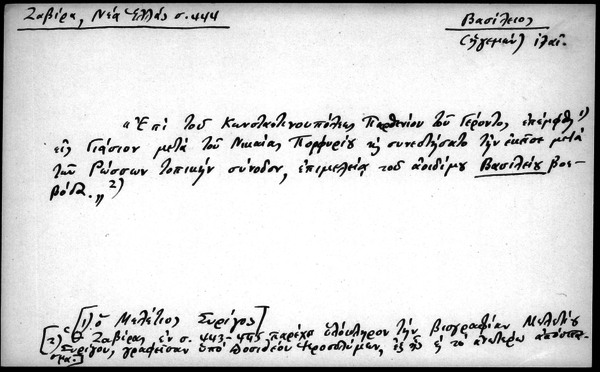 Ζαβίρα, Νέα Ἑλλάς σ. 444
Βασίλειος
(ἡγεμών)
"Ἐπὶ τοῦ Κωνσταντινουπόλεως Παρθενίου τοῦ Γέροντος, ἐπέμφθη 1)
εἰς Γιάσιον μετὰ τοῦ Νικαίας Πορφυρίου κ̀ συνεστήσατο τὴν ἐκεῖσε μετὰ
τῶν Ρώσσων τοπικὴν σύνοδον, ἐπιμελείᾳ τοῦ ἀοιδίμου Βασιλείου βοε-
βόδα." 2)
[1) ὁ Μελέτιος Συρίγος]
[2) Ὁ Ζαβίρας ἐν σ. 443-445 παρέχει ὁλόκληρον τὴν βιογραφίαν Μελετίου
Συρίγου, γραφεῖσαν ὑπὸ Δοσιθέου Ἱεροσολύμων, ἐξ ἧς κ̀ τὸ ἀνωτέρω ἀπόσπα-
σμα.]